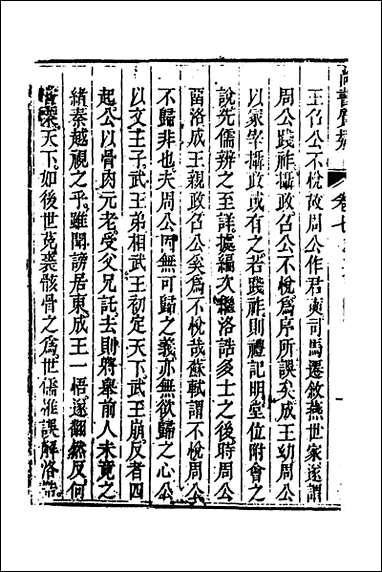 王召公不悅故周公作君奭司馬遷敘燕世家遂謂
周公踐祚攝政召公不悅爲序所誤矣成王幼周公
以冢宰攝政或有之若踐祚則禮記明堂位附會之
說先儒辨之至詳據編次繼洛誥多士之後時周公
畱洛成王親政召公奚爲不悅哉蘇軾謂不悅周公
不歸非也夫周公固無可歸之義亦無欲歸之心公
以文王子武王弟相武王初定天下武王崩反者四
起公以骨肉元老受父兄託去則將舉前人未竟之
緒秦越視之乎雖聞謗居東成王一悟遂翻然反何
棄天下如後世菟裘骸骨之爲世儒惟誤解洛誥
尚書
卷七